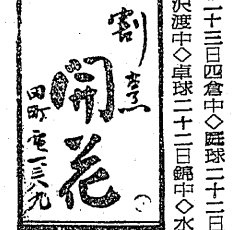 二十三日四倉中◇庭球二十二日
沢渡中◇卓球二十二日錦中◇水
割烹
開花
田町 電一三八九